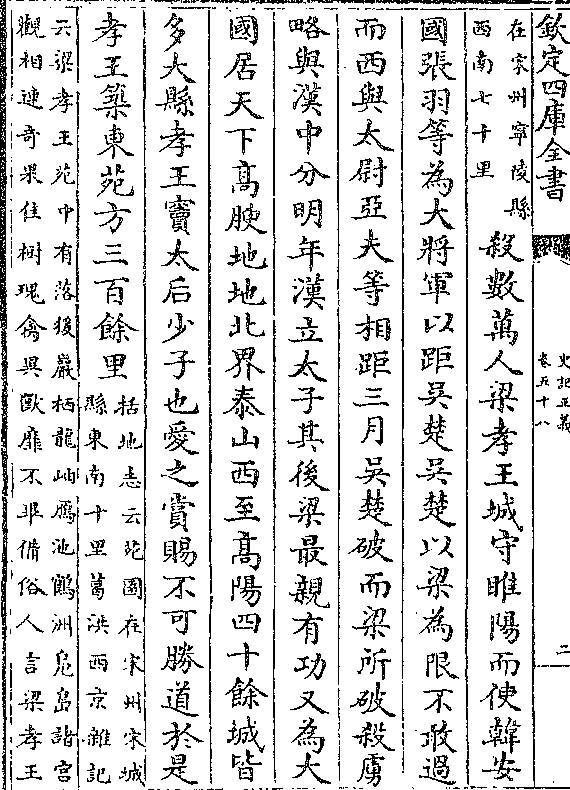 欽定四庫全書
史記正義
卷五十八
二
在宋州寧陵縣
西南七十里
殺數萬人梁孝王城守睢陽而使韓安
國張羽等為大將軍以距吳楚吳楚以梁為限不敢過
而西與太尉亞夫等相距三月吳楚破而梁所破殺虜
略與漢中分明年漢立太子其後梁最親有功又為大
國居天下髙腴地地北界泰山西至髙陽四十餘城皆
多大縣孝王竇太后少子也愛之賞賜不可勝道於是
孝王築東苑方三百餘里
括地志云苑園在宋州宋城
縣東南十里葛洪西京雜記
云梁孝王苑中有落猨巖栖龍岫鴈池鶴洲凫島諸宮
觀相連奇果佳樹瑰禽異獸靡不畢備俗人言梁孝王